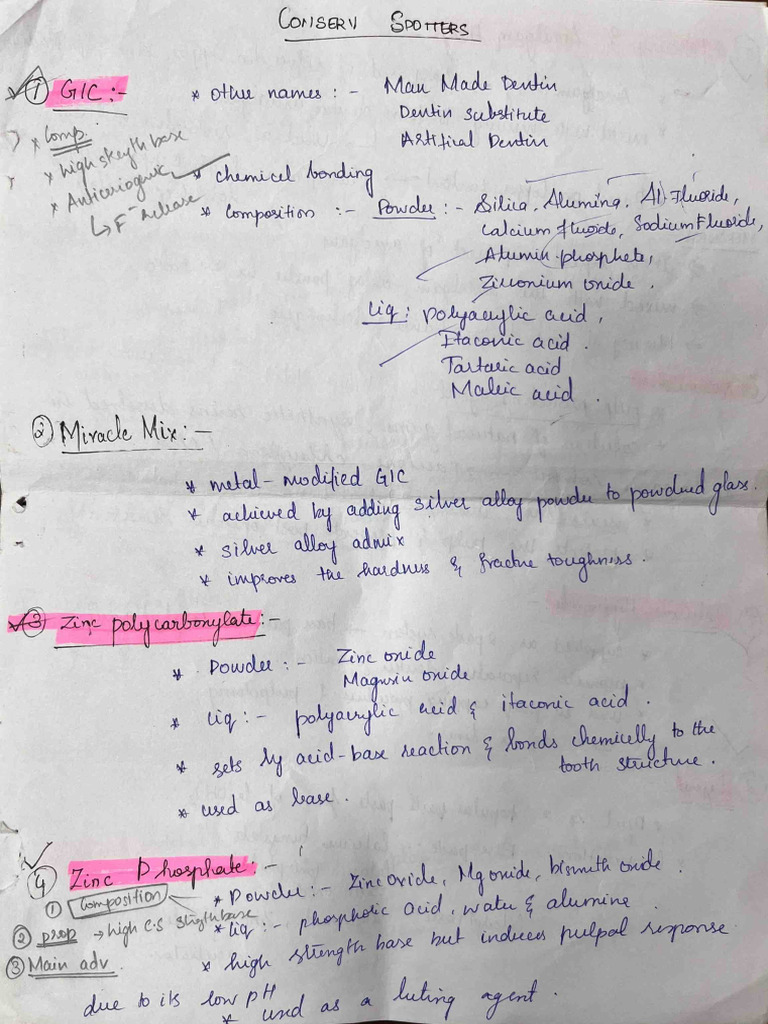 CONSERV SPOTTERS
① GIC :-
* other names :- Man Made Dentin
Dentin substitute
Artifical Dentin
* Comp.
* high strength base
* Anticariogenic
↳ F⁻ release
* chemical bonding
* composition :- Powder :- Silica, Alumina, Al Fluoride,
Calcium fluoride, Sodium Fluoride,
Alumin. phosphate,
Zirconium oxide.
Liq : polyacrylic acid,
Itaconic acid.
Tartaric acid
Maleic acid.
② Miracle Mix :-
* metal-modified GIC
* achieved by adding silver alloy powder to powdered glass.
* silver alloy admix
* improves the hardness & fracture toughness.
③ Zinc polycarboxylate :-
* Powder :- Zinc oxide
Magnesium oxide
* Liq :- polyacrylic acid & itaconic acid.
* sets by acid-base reaction & bonds chemically to the
tooth structure.
* used as base.
④ Zinc Phosphate :-
① Composition
② prop → high C.S strength base
③ Main adv.
* Powder :- Zinc oxide, Mg oxide, bismith oxide.
* Liq :- phosphoric acid, water & alumine.
* high strength base but induces pulpal response
due to its low pH
* used as a luting agent.